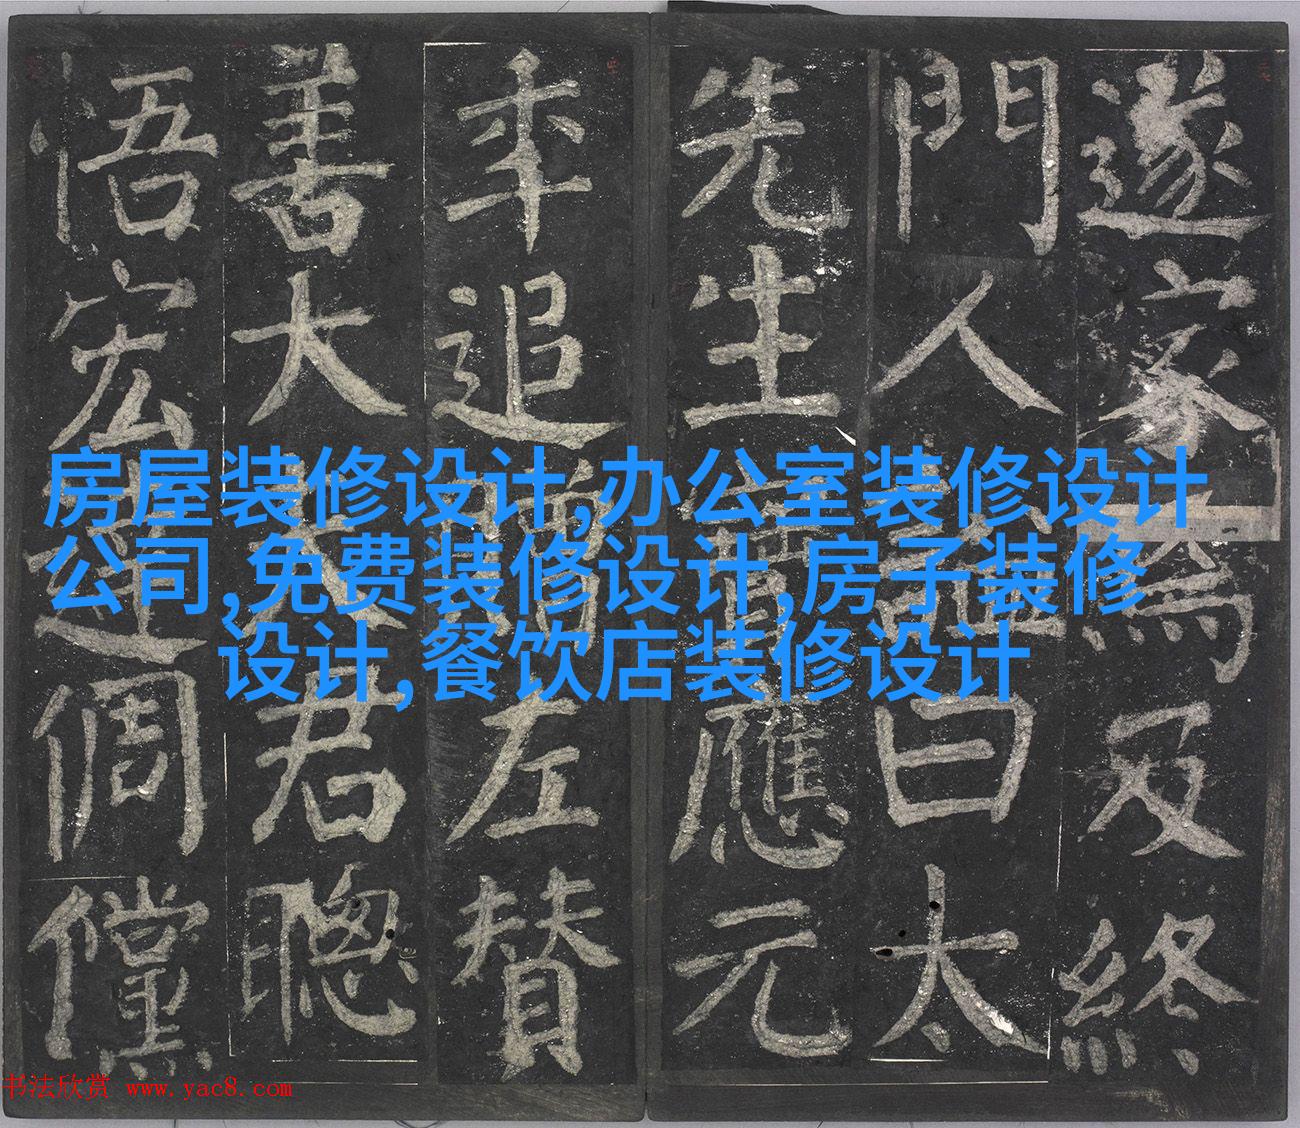 遂家焉及終
門人謚曰太
先生應元
年追贈左贊
善大夫君聰
悟宏達倜儻
房屋装修设计,办公室装修设计
公司,免费装修设计,房子装修
设计,餐饮店装修设计
书法欣赏 www.yac8.com